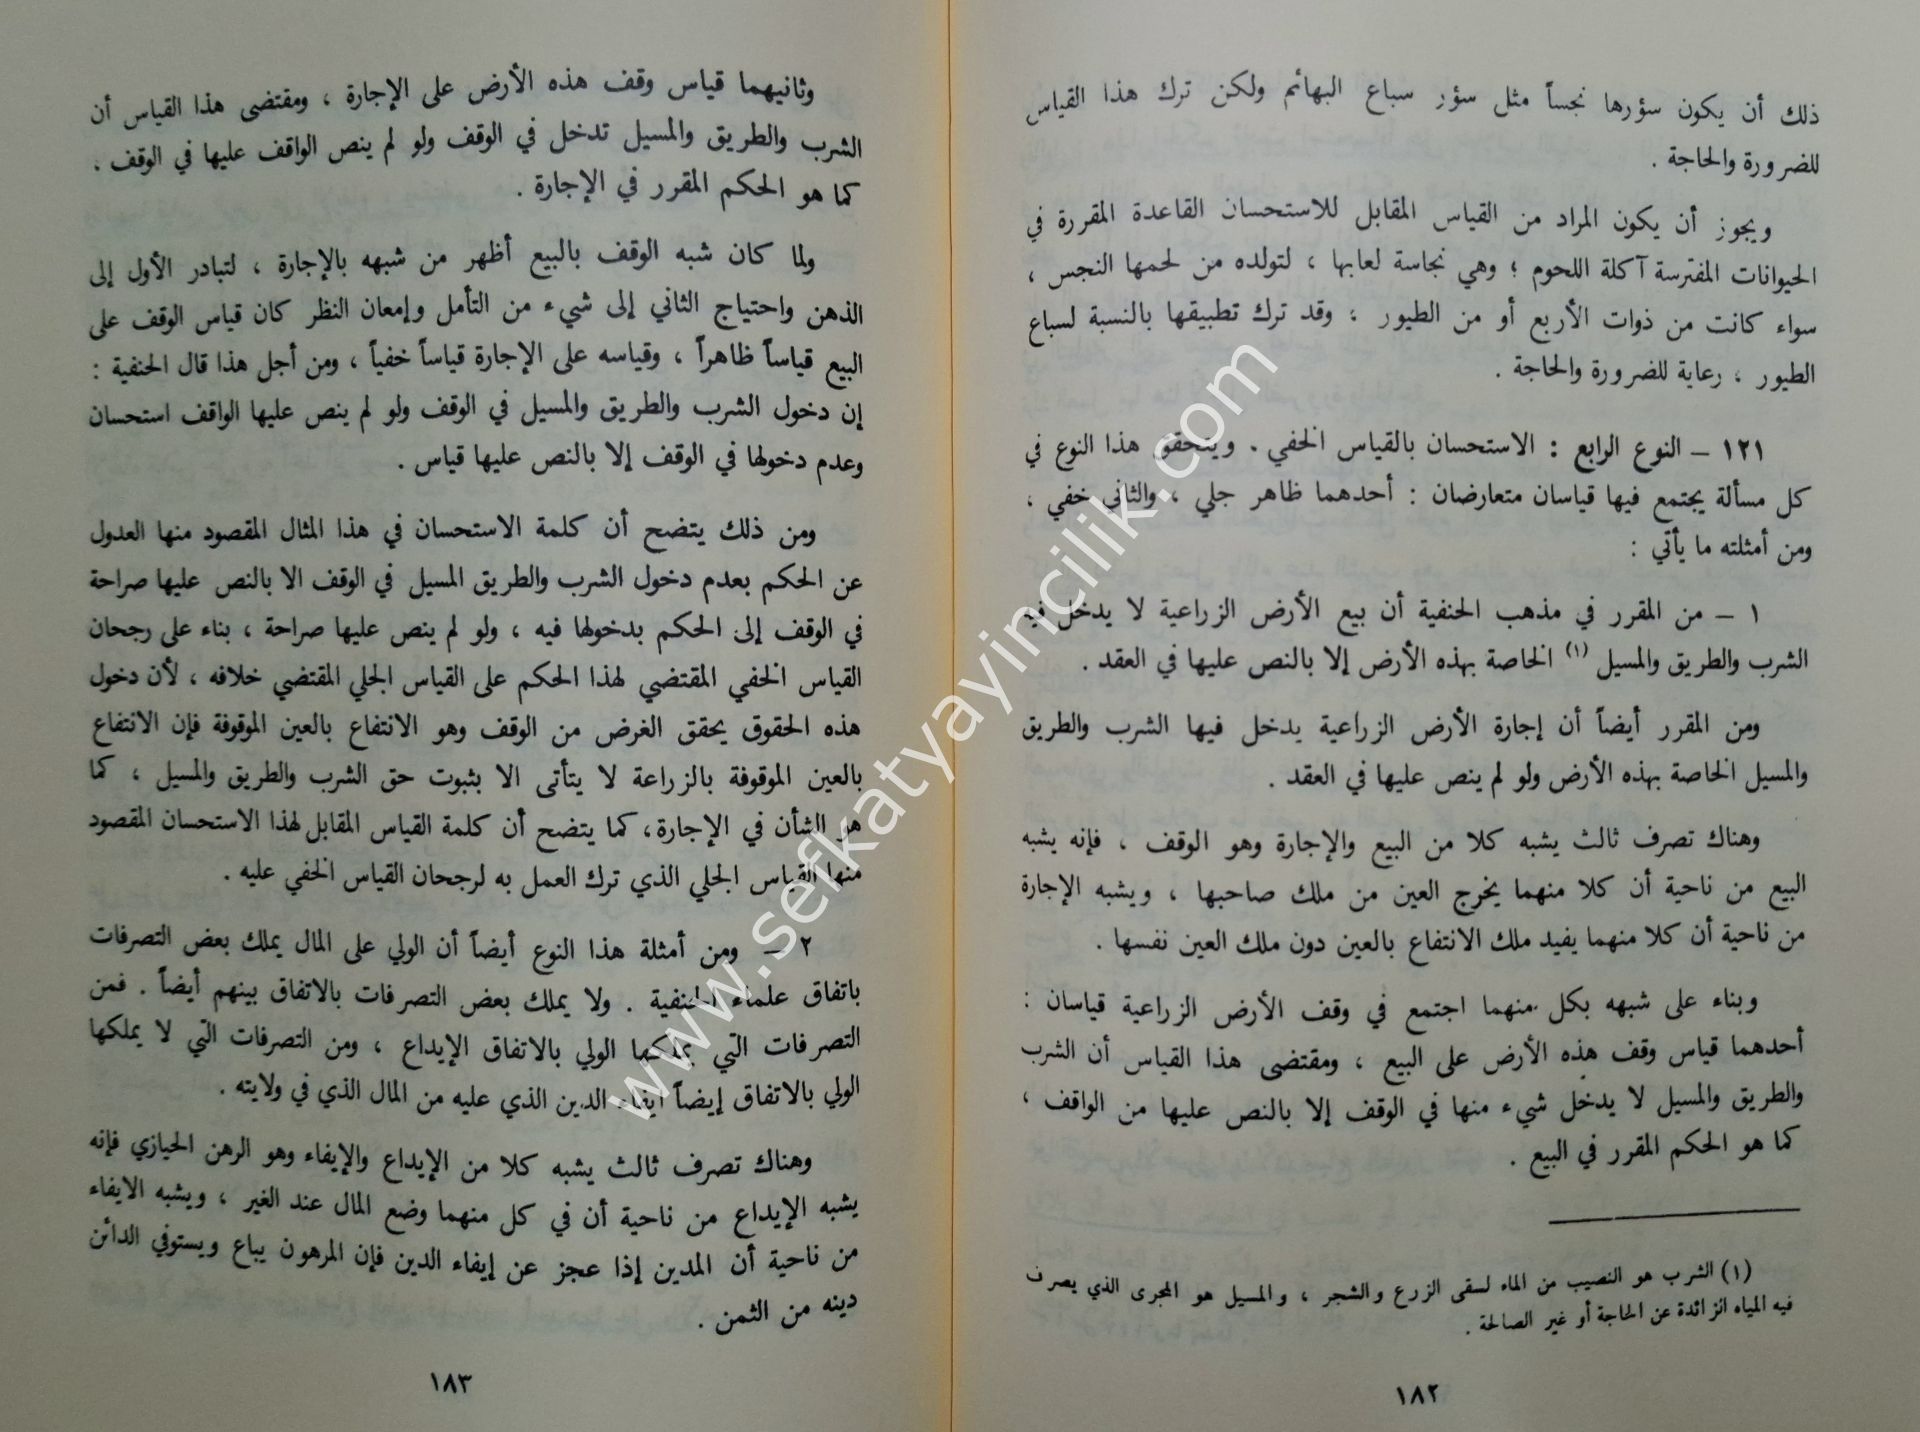 ذلك أن يكون سؤرها نجساً مثل سؤر سباع البهائم ولكن ترك هذا القياس
للضرورة والحاجة .
ويجوز أن يكون المراد من القياس المقابل للاستحسان القاعدة المقررة في
الحيوانات المفترسة آكلة اللحوم ؛ وهي نجاسة لعابها ، لتولده من لحمها النجس ،
سواء كانت من ذوات الأربع أو من الطيور ، وقد ترك تطبيقها بالنسبة لسباع
الطيور ، رعاية للضرورة والحاجة .
١٢١ – النوع الرابع : الاستحسان بالقياس الخفي . ويتحقق هذا النوع في
كل مسألة يجتمع فيها قياسان متعارضان : أحدهما ظاهر جلي ، والثاني خفي ،
ومن أمثلته ما يأتي :
١ – من المقرر في مذهب الحنفية أن بيع الأرض الزراعية لا يدخل فيه
الشرب والطريق والمسيل (١) الخاصة بهذه الأرض إلا بالنص عليها في العقد .
ومن المقرر أيضاً أن إجارة الأرض الزراعية يدخل فيها الشرب والطريق
والمسيل الخاصة بهذه الأرض ولو لم ينص عليها في العقد .
وهناك تصرف ثالث يشبه كلا من البيع والإجارة وهو الوقف ، فإنه يشبه
البيع من ناحية أن كلا منهما يخرج العين من ملك صاحبها ، ويشبه الإجارة
من ناحية أن كلا منهما يفيد ملك الانتفاع بالعين دون ملك العين نفسها .
وبناء على شبهه بكل منهما اجتمع في وقف الأرض الزراعية قياسان :
أحدهما قياس وقف هذه الأرض على البيع ، ومقتضى هذا القياس أن الشرب
والطريق والمسيل لا يدخل شيء منها في الوقف إلا بالنص عليها من الواقف ،
كما هو الحكم المقرر في البيع .
(١) الشرب هو النصيب من الماء لسقى الزرع والشجر ، والمسيل هو المجرى الذي يصرف
فيه المياه الزائدة عن الحاجة أو غير الصالحة .
١٨٢
وثانيهما قياس وقف هذه الأرض على الإجارة ، ومقتضى هذا القياس أن
الشرب والطريق والمسيل تدخل في الوقف ولو لم ينص الواقف عليها في الوقف .
كما هو الحكم المقرر في الإجارة .
ولما كان شبه الوقف بالبيع أظهر من شبهه بالإجارة ، لتبادر الأول إلى
الذهن واحتياج الثاني إلى شيء من التأمل وإمعان النظر كان قياس الوقف على
البيع قياساً ظاهراً ، وقياسه على الإجارة قياساً خفياً ، ومن أجل هذا قال الحنفية :
إن دخول الشرب والطريق والمسيل في الوقف ولو لم ينص عليها الواقف استحسان
وعدم دخولها في الوقف إلا بالنص عليها قياس .
ومن ذلك يتضح أن كلمة الاستحسان في هذا المثال المقصود منها العدول
عن الحكم بعدم دخول الشرب والطريق المسيل في الوقف الا بالنص عليها صراحة
في الوقف إلى الحكم بدخولها فيه ، ولو لم ينص عليها صراحة ، بناء على رجحان
القياس الخفي المقتضي لهذا الحكم على القياس الجلي المقتضي خلافه ، لأن دخول
هذه الحقوق يحقق الغرض من الوقف وهو الانتفاع بالعين الموقوفة فإن الانتفاع
بالعين الموقوفة بالزراعة لا يتأتى الا بثبوت حق الشرب والطريق والمسيل ، كما
هو الشأن في الإجارة، كما يتضح أن كلمة القياس المقابل لهذا الاستحسان المقصود
منها القياس الجلي الذي ترك العمل به لرجحان القياس الخفي عليه .
٢ – ومن أمثلة هذا النوع أيضاً أن الولي على المال يملك بعض التصرفات
باتفاق علماء الحنفية . ولا يملك بعض التصرفات بالاتفاق بينهم أيضاً . فمن
التصرفات التي يملكها الولي بالاتفاق الإيداع ، ومن التصرفات التي لا يملكها
الولي بالاتفاق إيضاً ايفاء الدين الذي عليه من المال الذي في ولايته .
وهناك تصرف ثالث يشبه كلا من الإيداع والإيفاء وهو الرهن الحيازي فإنه
يشبه الإيداع من ناحية أن في كل منهما وضع المال عند الغير ، ويشبه الايفاء
من ناحية أن المدين إذا عجز عن إيفاء الدين فإن المرهون يباع ويستوفي الدائن
دينه من الثمن .
١٨٣
www.sefkatyayincilik.com